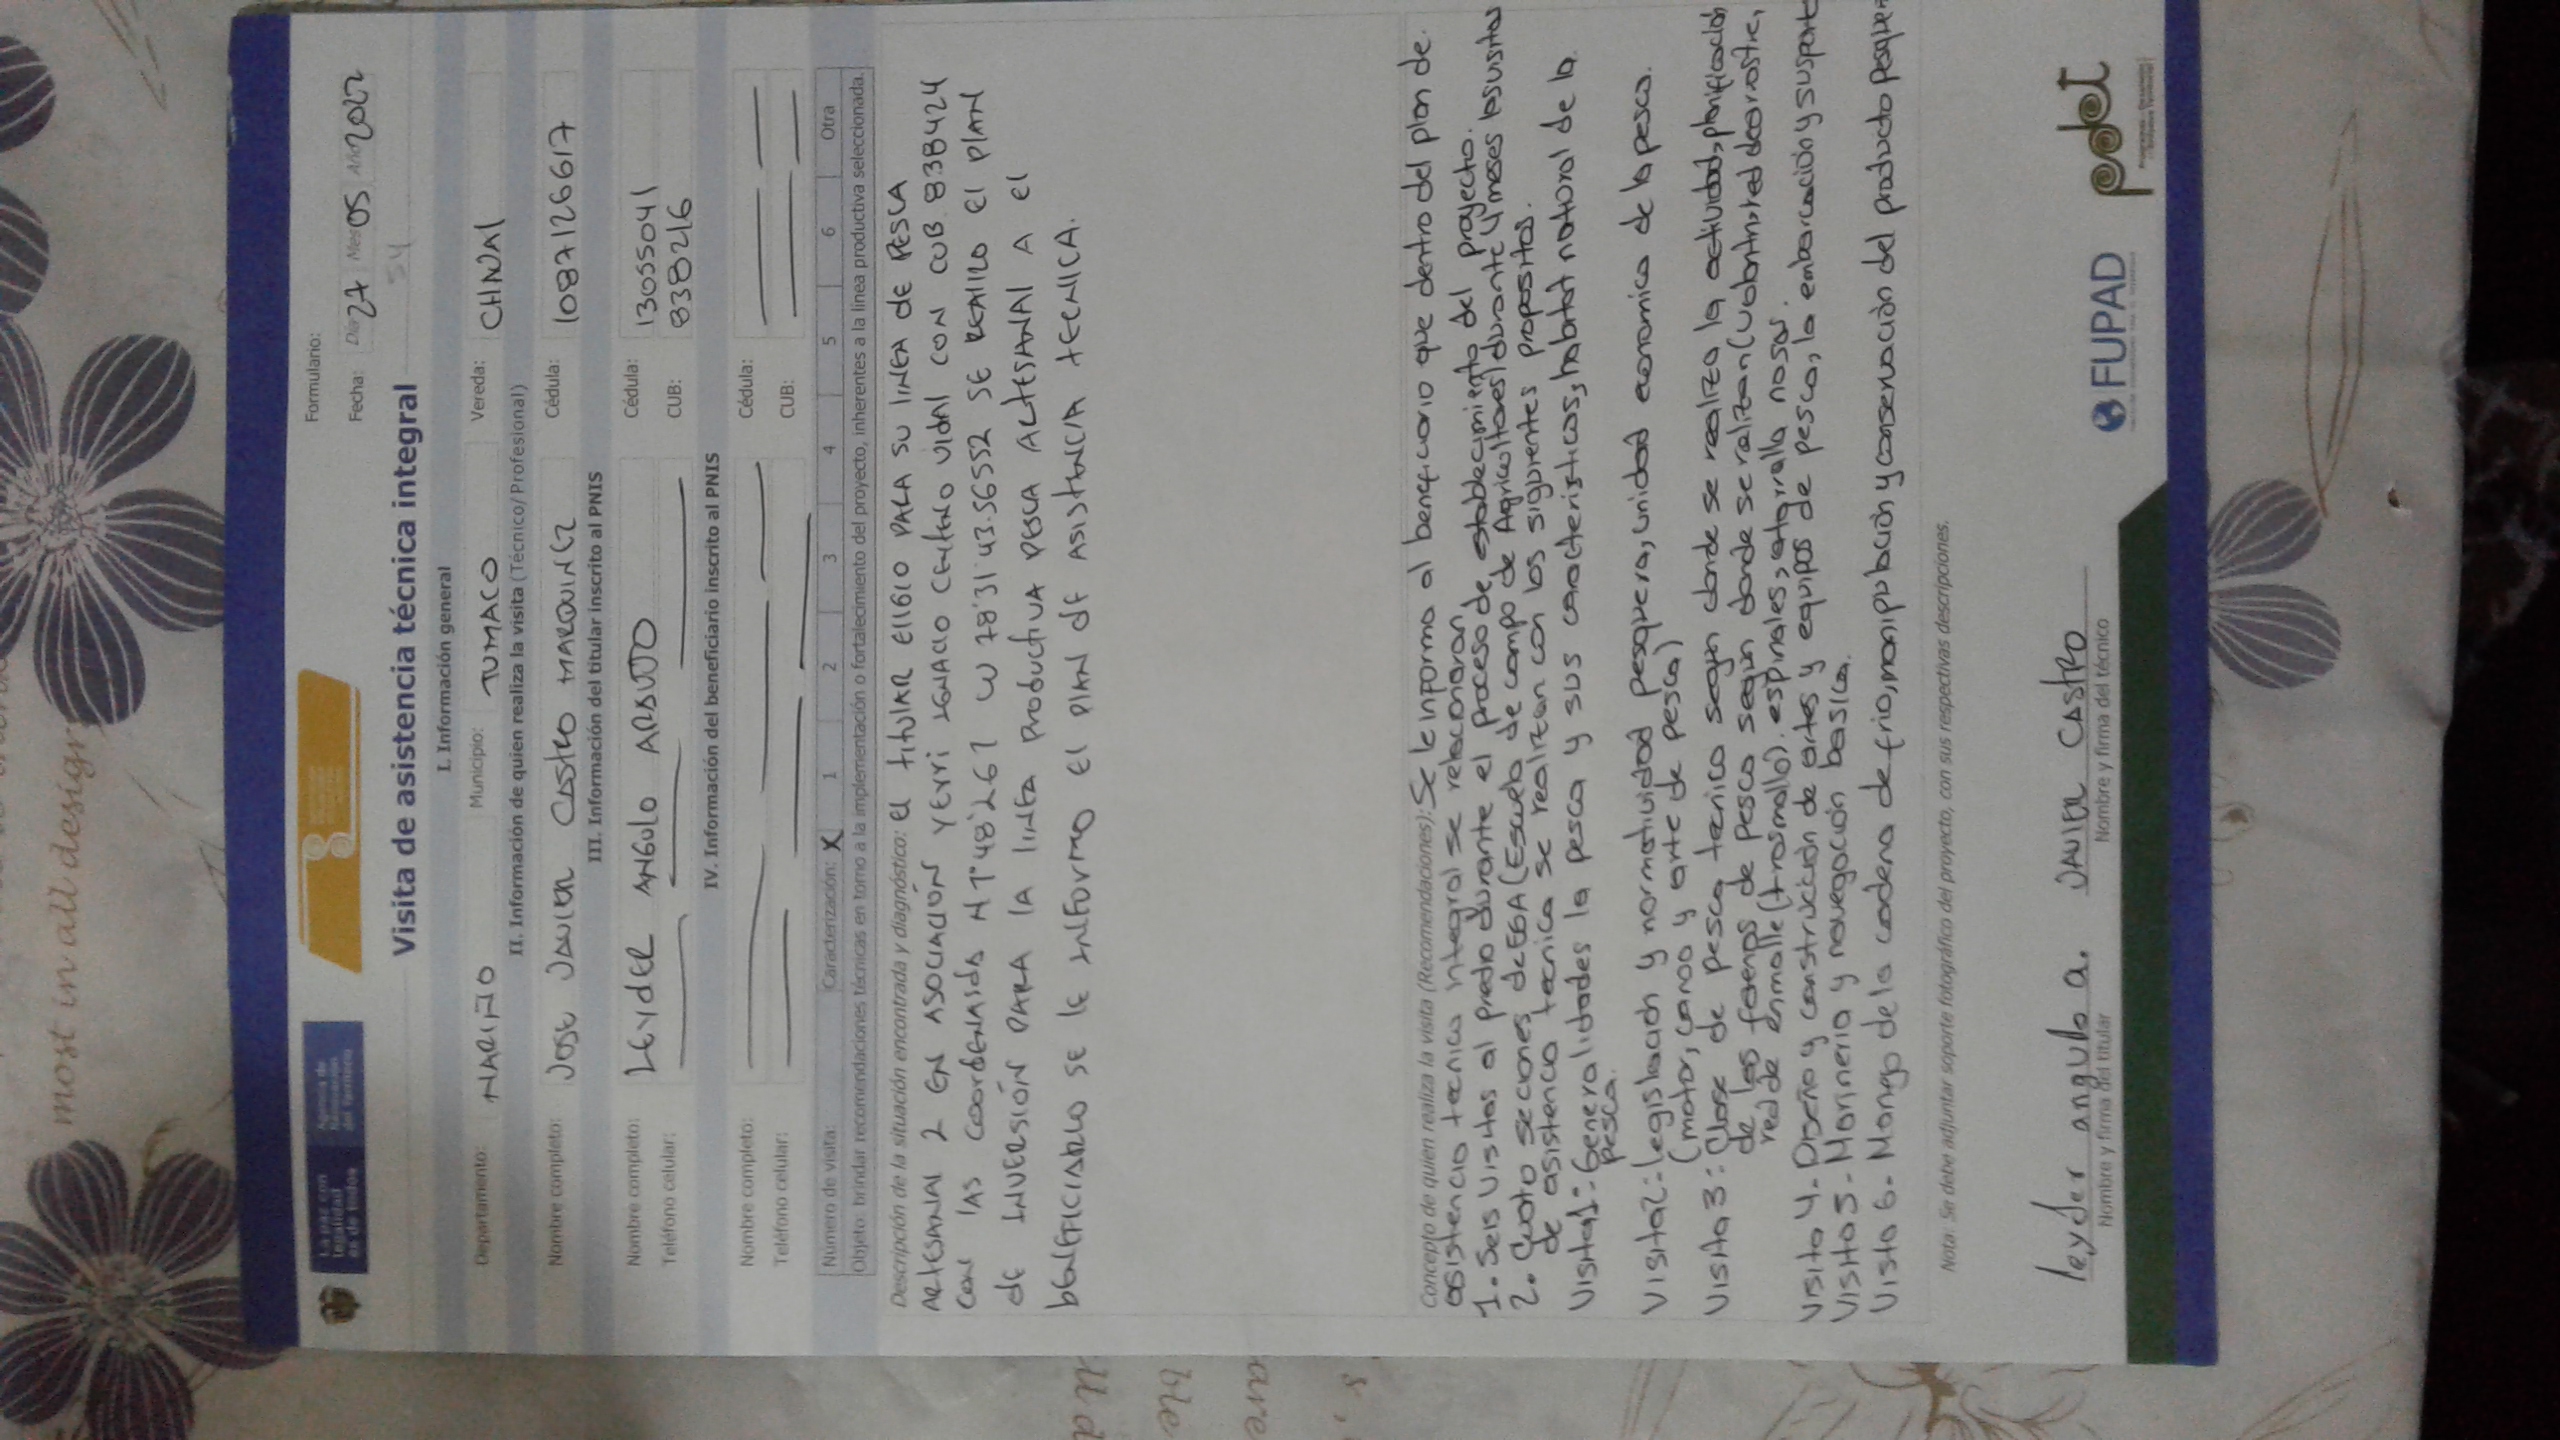 most in all design
La paz con legalidad es de todos
Agencia de Renovación del Territorio
Formulario:
Fecha: Día 27 Mes 05 Año 2022
54
Visita de asistencia técnica integral
I. Información general
Departamento: NARIÑO Municipio: TUMACO Vereda: CHINAL
II. Información de quien realiza la visita (Técnico/Profesional)
Nombre completo: JOSE JAVIER CASTRO MARQUINEZ Cédula: 1087126617
III. Información del titular inscrito al PNIS
Nombre completo: LEYDER ANGULO ARBOTO Cédula: 13055041
Teléfono celular: CUB: 838216
IV. Información del beneficiario inscrito al PNIS
Nombre completo: Cédula:
Teléfono celular: CUB:
Número de visita: Caracterización: X 1 2 3 4 5 6 Otra
Objeto: brindar recomendaciones técnicas en torno a la implementación o fortalecimiento del proyecto, inherentes a la línea productiva seleccionada.
Descripción de la situación encontrada y diagnóstico: El titular eligio para su linea de PESCA
ARTESANAL 2 EN ASOCIACIÓN YERRI IGNACIO CENTENO VIDAL CON CUB 838424
CON LAS COORDENADAS N 1°48'26.1 W 78°31'43.56552 SE REALIZO EL PLAN
DE INVERSIÓN PARA LA LINEA PRODUCTIVA PESCA ARTESANAL A EL
BENEFICIARIO SE LE INFORMO EL PLAN DE ASISTENCIA TECNICA.
Concepto de quien realiza la visita (Recomendaciones): Se le informo al beneficiario que dentro del plan de
asistencia tecnica integral se relacionaran
1. Seis visitas al predio durante el proceso de establecimiento del proyecto.
2. Cuato secciones de EGA (Escuela de campo de Agricultores) durante 4 meses las visitas
de asistencia tecnica se realizan con los siguientes propositos.
Visita 1: Generalidades la pesca y sus caracteristicas, habitat natural de la
pesca.
Visita 2: legislación y normatividad pesquera, unidad economica de la pesca.
(motor, canoa y arte de pesca)
Visita 3: Clase de pesca tecnica según donde se realiza la actividad, planificación
de las faenas de pesca según donde se ralizan (volantin, red de arrastre,
red de enmalle (trasmallo). espinales, atarralla nasas.
Visita 4. Diseño y construcción de artes y equipos de pesca, la embarcación y su soporte
Visita 5. Marineria y navegación basica.
Visita 6. Manejo de la cadena de frio, manipulación y conservación del producto pesquero
Nota: Se debe adjuntar soporte fotográfico del proyecto, con sus respectivas descripciones.
leyder angulo a. JAVIER CASTRO
Nombre y firma del titular Nombre y firma del técnico
FUPAD
pdet